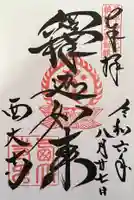 奉拝
令和六年
八月廿七日
釋迦如来
西大寺